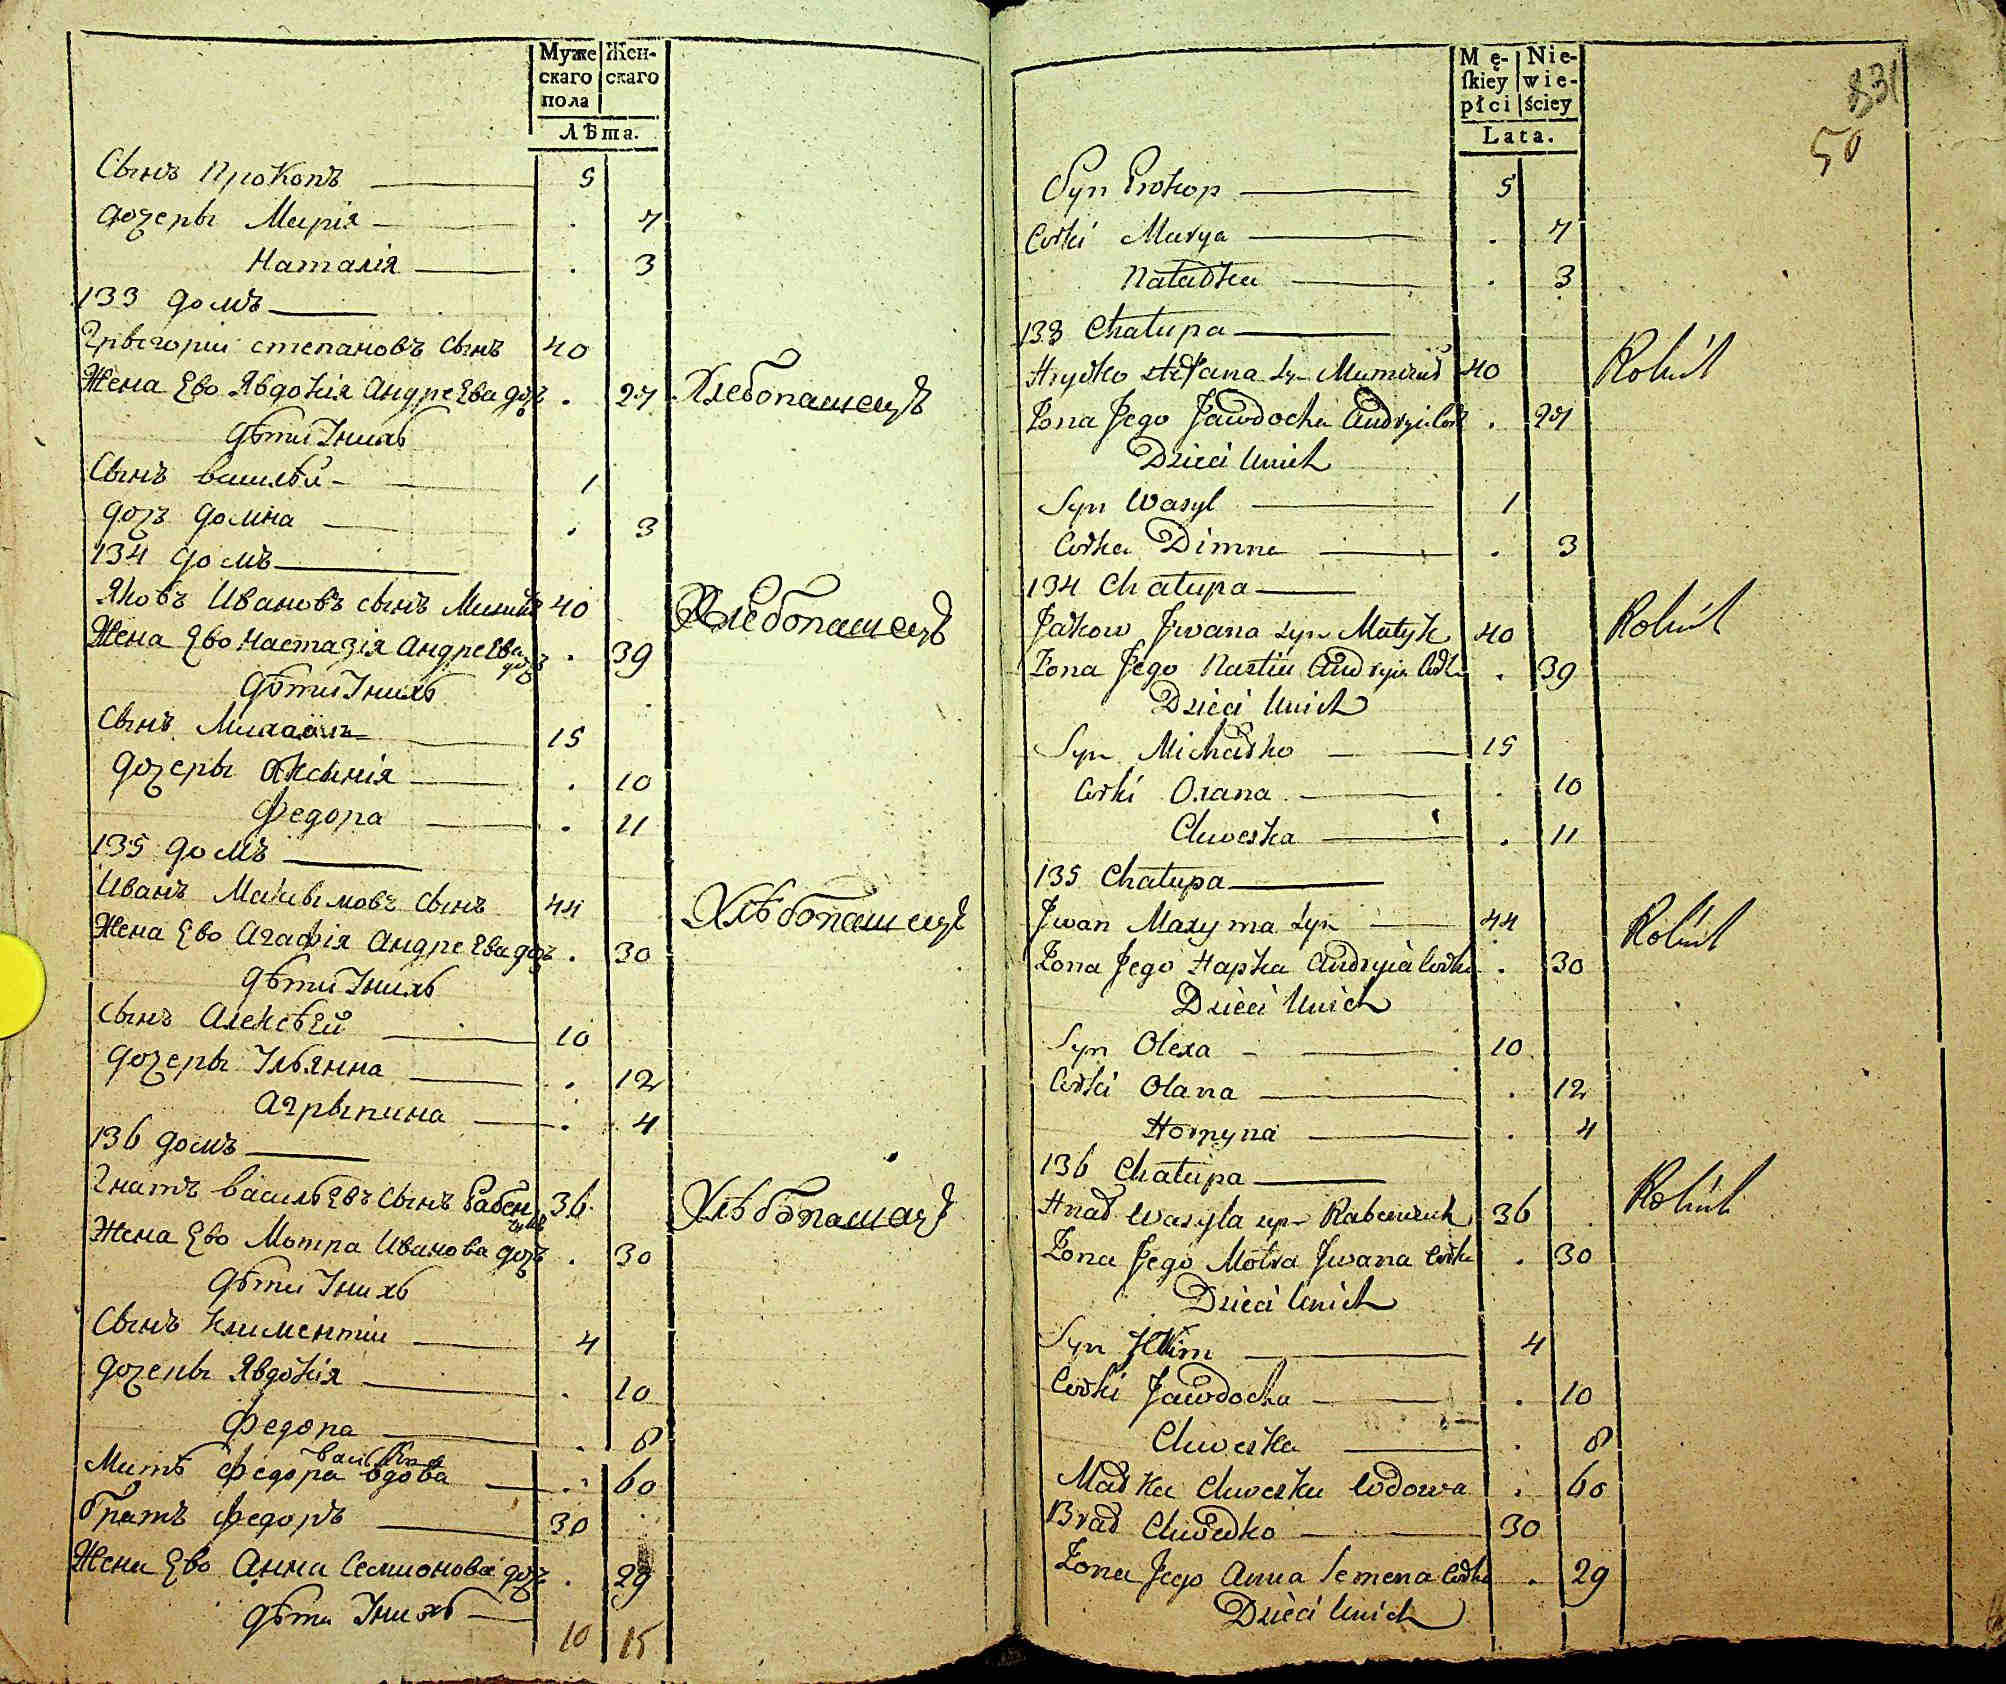 Муже Жен-
скаго скаго
пола
Лѣта.
Сынъ Прокопъ 5
дочеры Марія . 7
Наталія . 3
133 домъ
Грыгорій степановъ сынъ 40
Жена Ево Явдокія Андреева доч . 27 Хлебопашецъ
Дѣти Унихъ
Сынъ василѣй 1
дочъ домна . 3
134 домъ
Яковъ Ивановъ сынъ 40 Хлебопашецъ
Жена Ево Настазія Андреева дочъ . 39
Дѣти Унихъ
Сынъ Михаилъ 15
дочеры Оксинія . 10
Федора . 11
135 домъ
Иванъ Максымовъ сынъ 44 Хлѣбопашецъ
Жена Ево Агафія Андреева дочъ . 30
Дѣти Унихъ
Сынъ Алексѣй 10
дочеры Ульянна . 12
Агрыпина . 4
136 домъ
Гнатъ васильевъ сынъ 36 Хлѣбопашецъ
Жена Ево Мотра Иванова дочъ . 30
Дѣти Унихъ
Сынъ Климентій 4
дочеры Явдокія . 10
Федора . 8
Мать Федора вдова . 60
братъ Федоръ 30
Жена Ево Анна Семионова дочъ . 29
Дѣти Унихъ
10 15
Mę- Nie-
ſkiey wie-
płci ściey
Lata.
831
50
Syn Prokop 5
Corki Marya . 7
Natałka . 3
133 Chałupa
Hryćko stefana syn 40 Rolnik
Żona Jego Jawdocha Andryia Cork . 27
Dzieci Unich
Syn Wasyl 1
Corka Dimna . 3
134 Chałupa
Jakow Jwana syn 40 Rolnik
Żona Jego Nastia Andryia Corka . 39
Dzieci Unich
Syn Michałko 15
Corki Oxana . 10
Chweska . 11
135 Chałupa
Jwan Maxyma syn 44 Rolnik
Żona Jego Hapka Andryia Corka . 30
Dzieci Unich
Syn Olexa 10
Corki Olana . 12
Horpyna . 4
136 Chałupa
Hnad Wasyla syn 36 Rolnik
Żona Jego Motra Jwana Corka . 30
Dzieci Unich
Syn 4
Corki Jawdocha . 10
Chweska . 8
Madka Chweska Wdowa . 60
Brad Chwedko 30
Żona Jego Anna Semena Corka . 29
Dzieci Unich